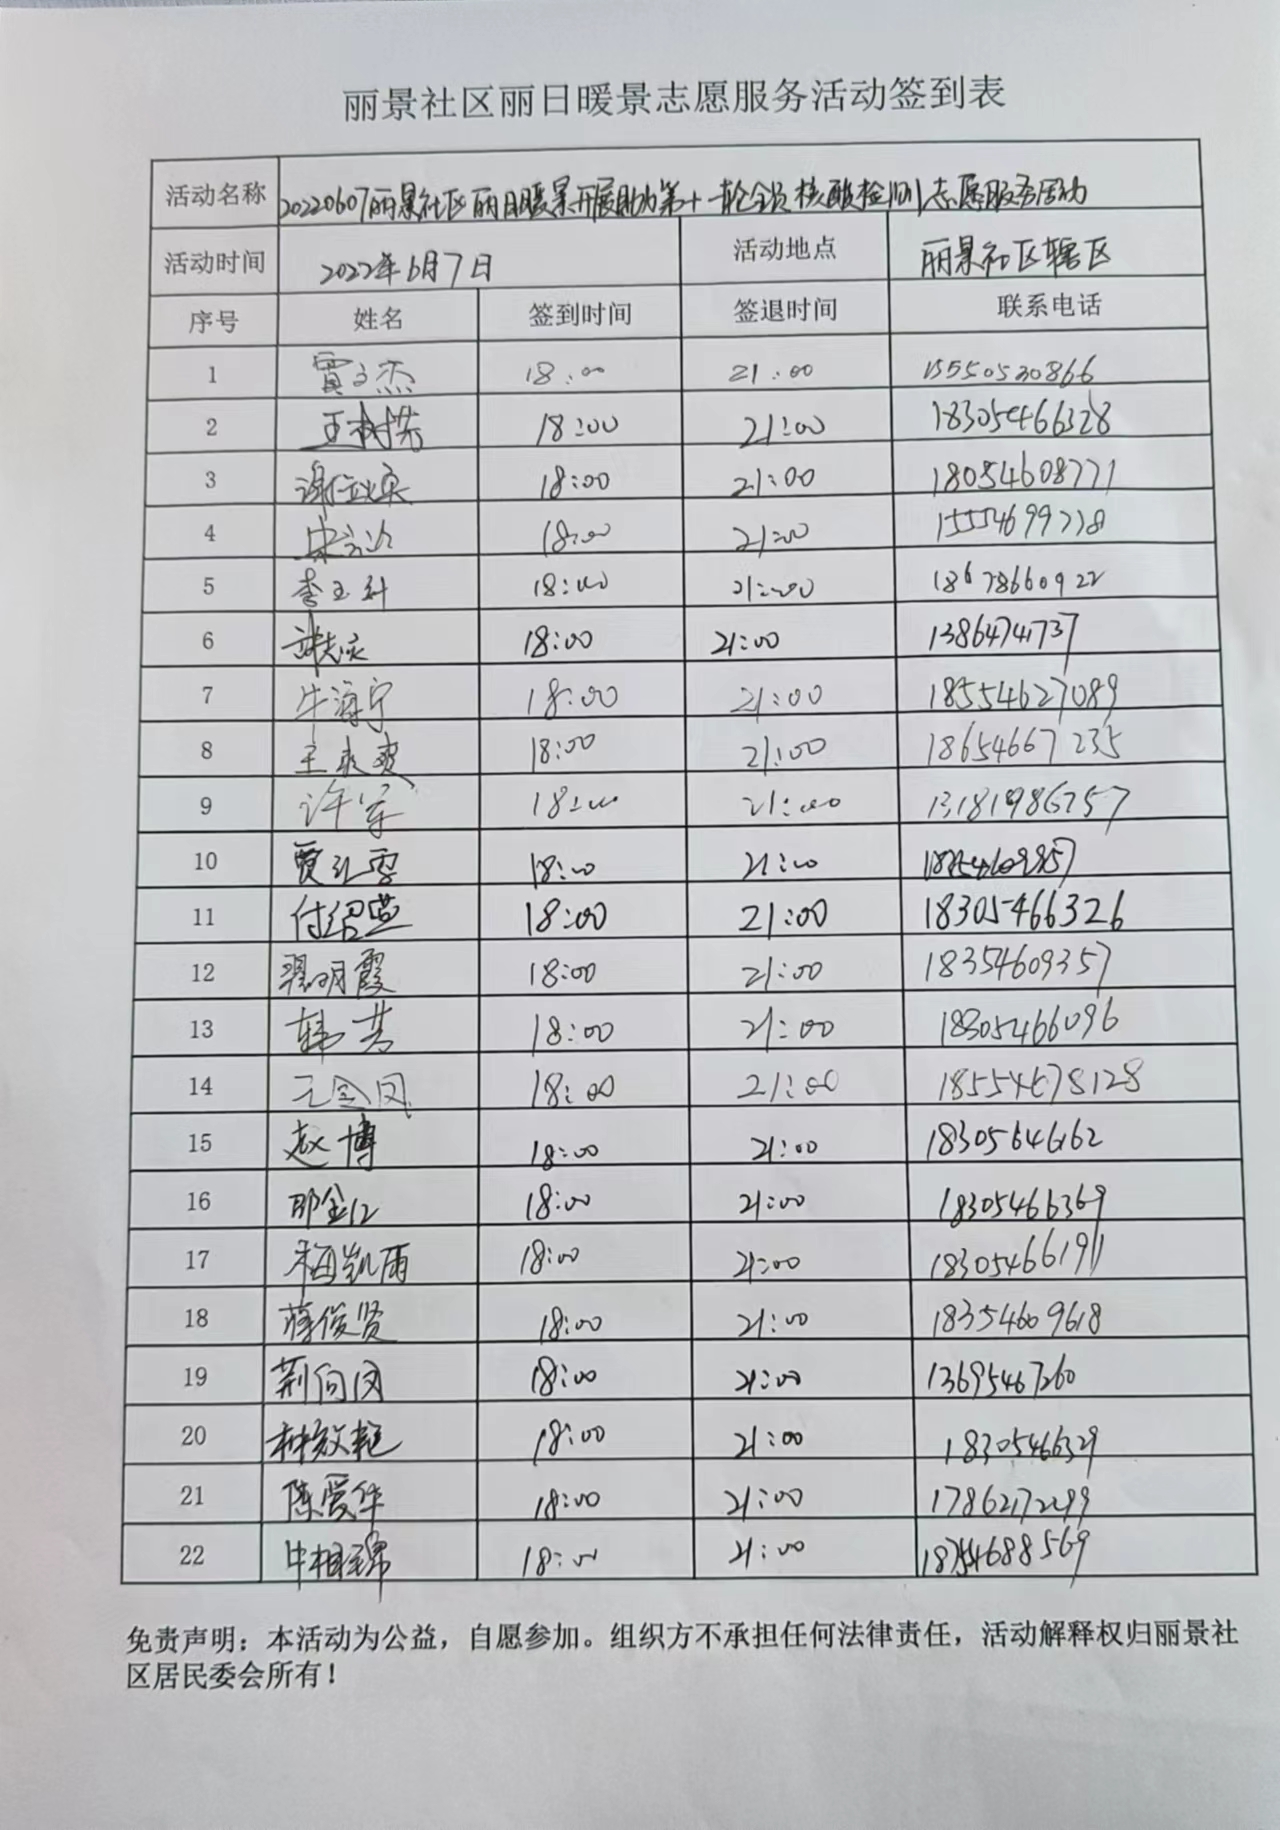 丽景社区丽日暖景志愿服务活动签到表
活动名称 20220607丽景社区丽日暖景开展助力第十一轮全员核酸检测志愿服务活动
活动时间 2022年6月7日 活动地点 丽景社区辖区
序号 姓名 签到时间 签退时间 联系电话
1 18:00 21:00 15550530866
2 18:00 21:00 18305466328
3 18:00 21:00 18054608771
4 18:00 21:00
5 李玉科 18:00 21:00 18678660922
6 18:00 21:00 13864741737
7 牛海宁 18:00 21:00 18554627089
8 王爽爽 18:00 21:00 18654667235
9 许军 18:00 21:00 13181986757
10 贾红雪 18:00 21:00
11 付绍燕 18:00 21:00 18305466326
12 翟明霞 18:00 21:00 18354609357
13 韩芳 18:00 21:00 18305466096
14 王金凤 18:00 21:00 18554678128
15 赵博 18:00 21:00 18305646162
16 18:00 21:00 18305466369
17 梅凯雨 18:00 21:00 18305466191
18 蒋俊贤 18:00 21:00 18354609618
19 荆向凤 18:00 21:00 13695467260
20 林效艳 18:00 21:00 18305466329
21 陈爱华 18:00 21:00 17862172299
22 18:00 21:00 18754688569
免责声明：本活动为公益，自愿参加。组织方不承担任何法律责任，活动解释权归丽景社
区居民委会所有！